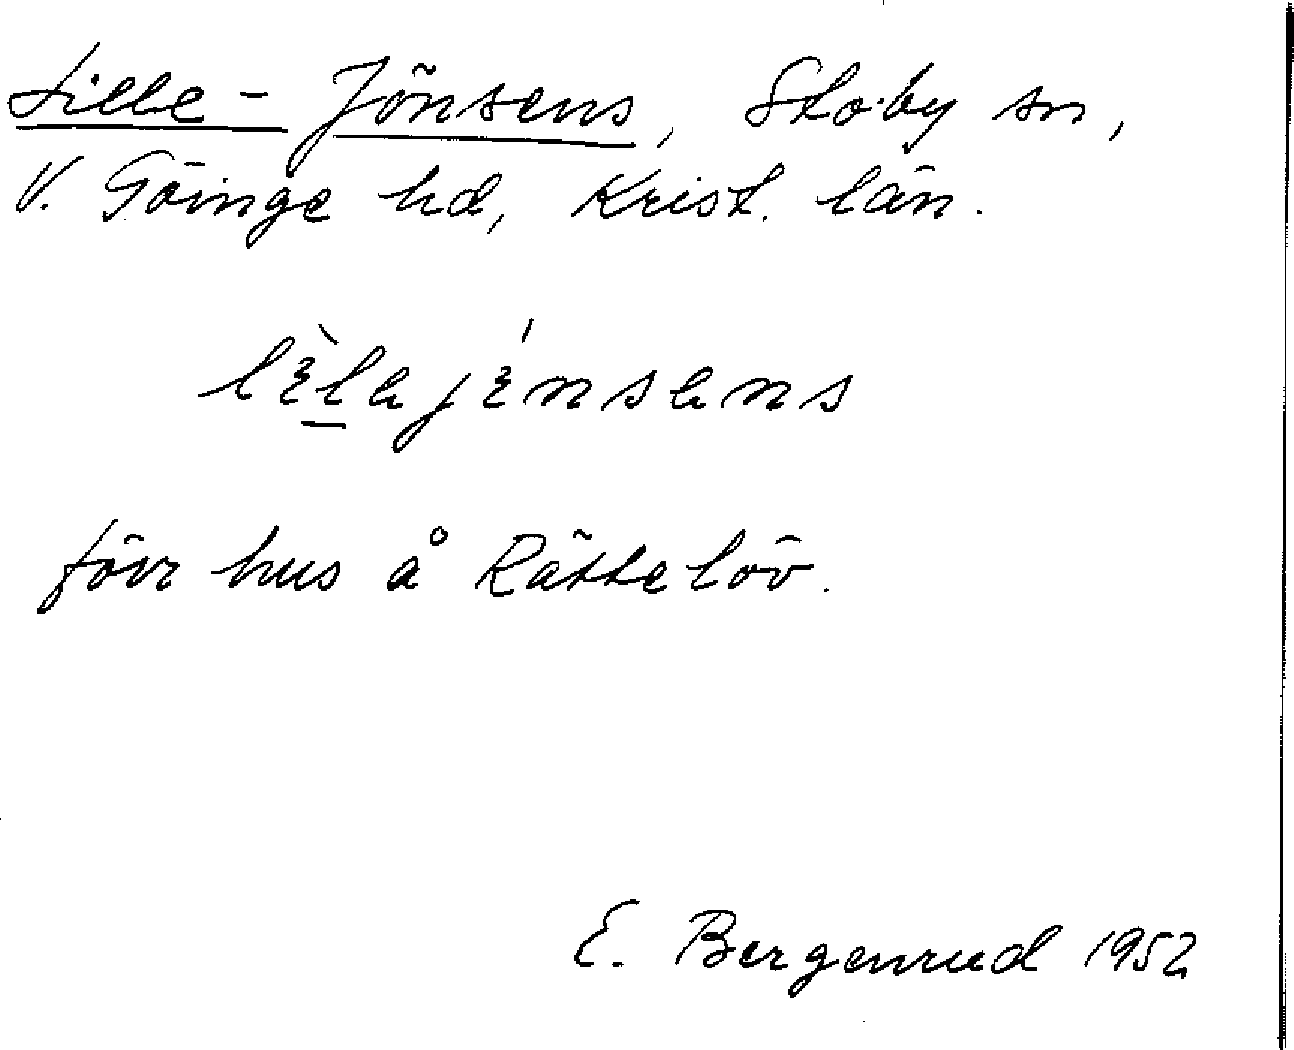 Lille-Jönsens, Stoby sn,
V. Göinge hd, Krist. län.
lɛ̀lajɛ́nsans
förr hus å Röttelöv.
E. Bergenrud 1952